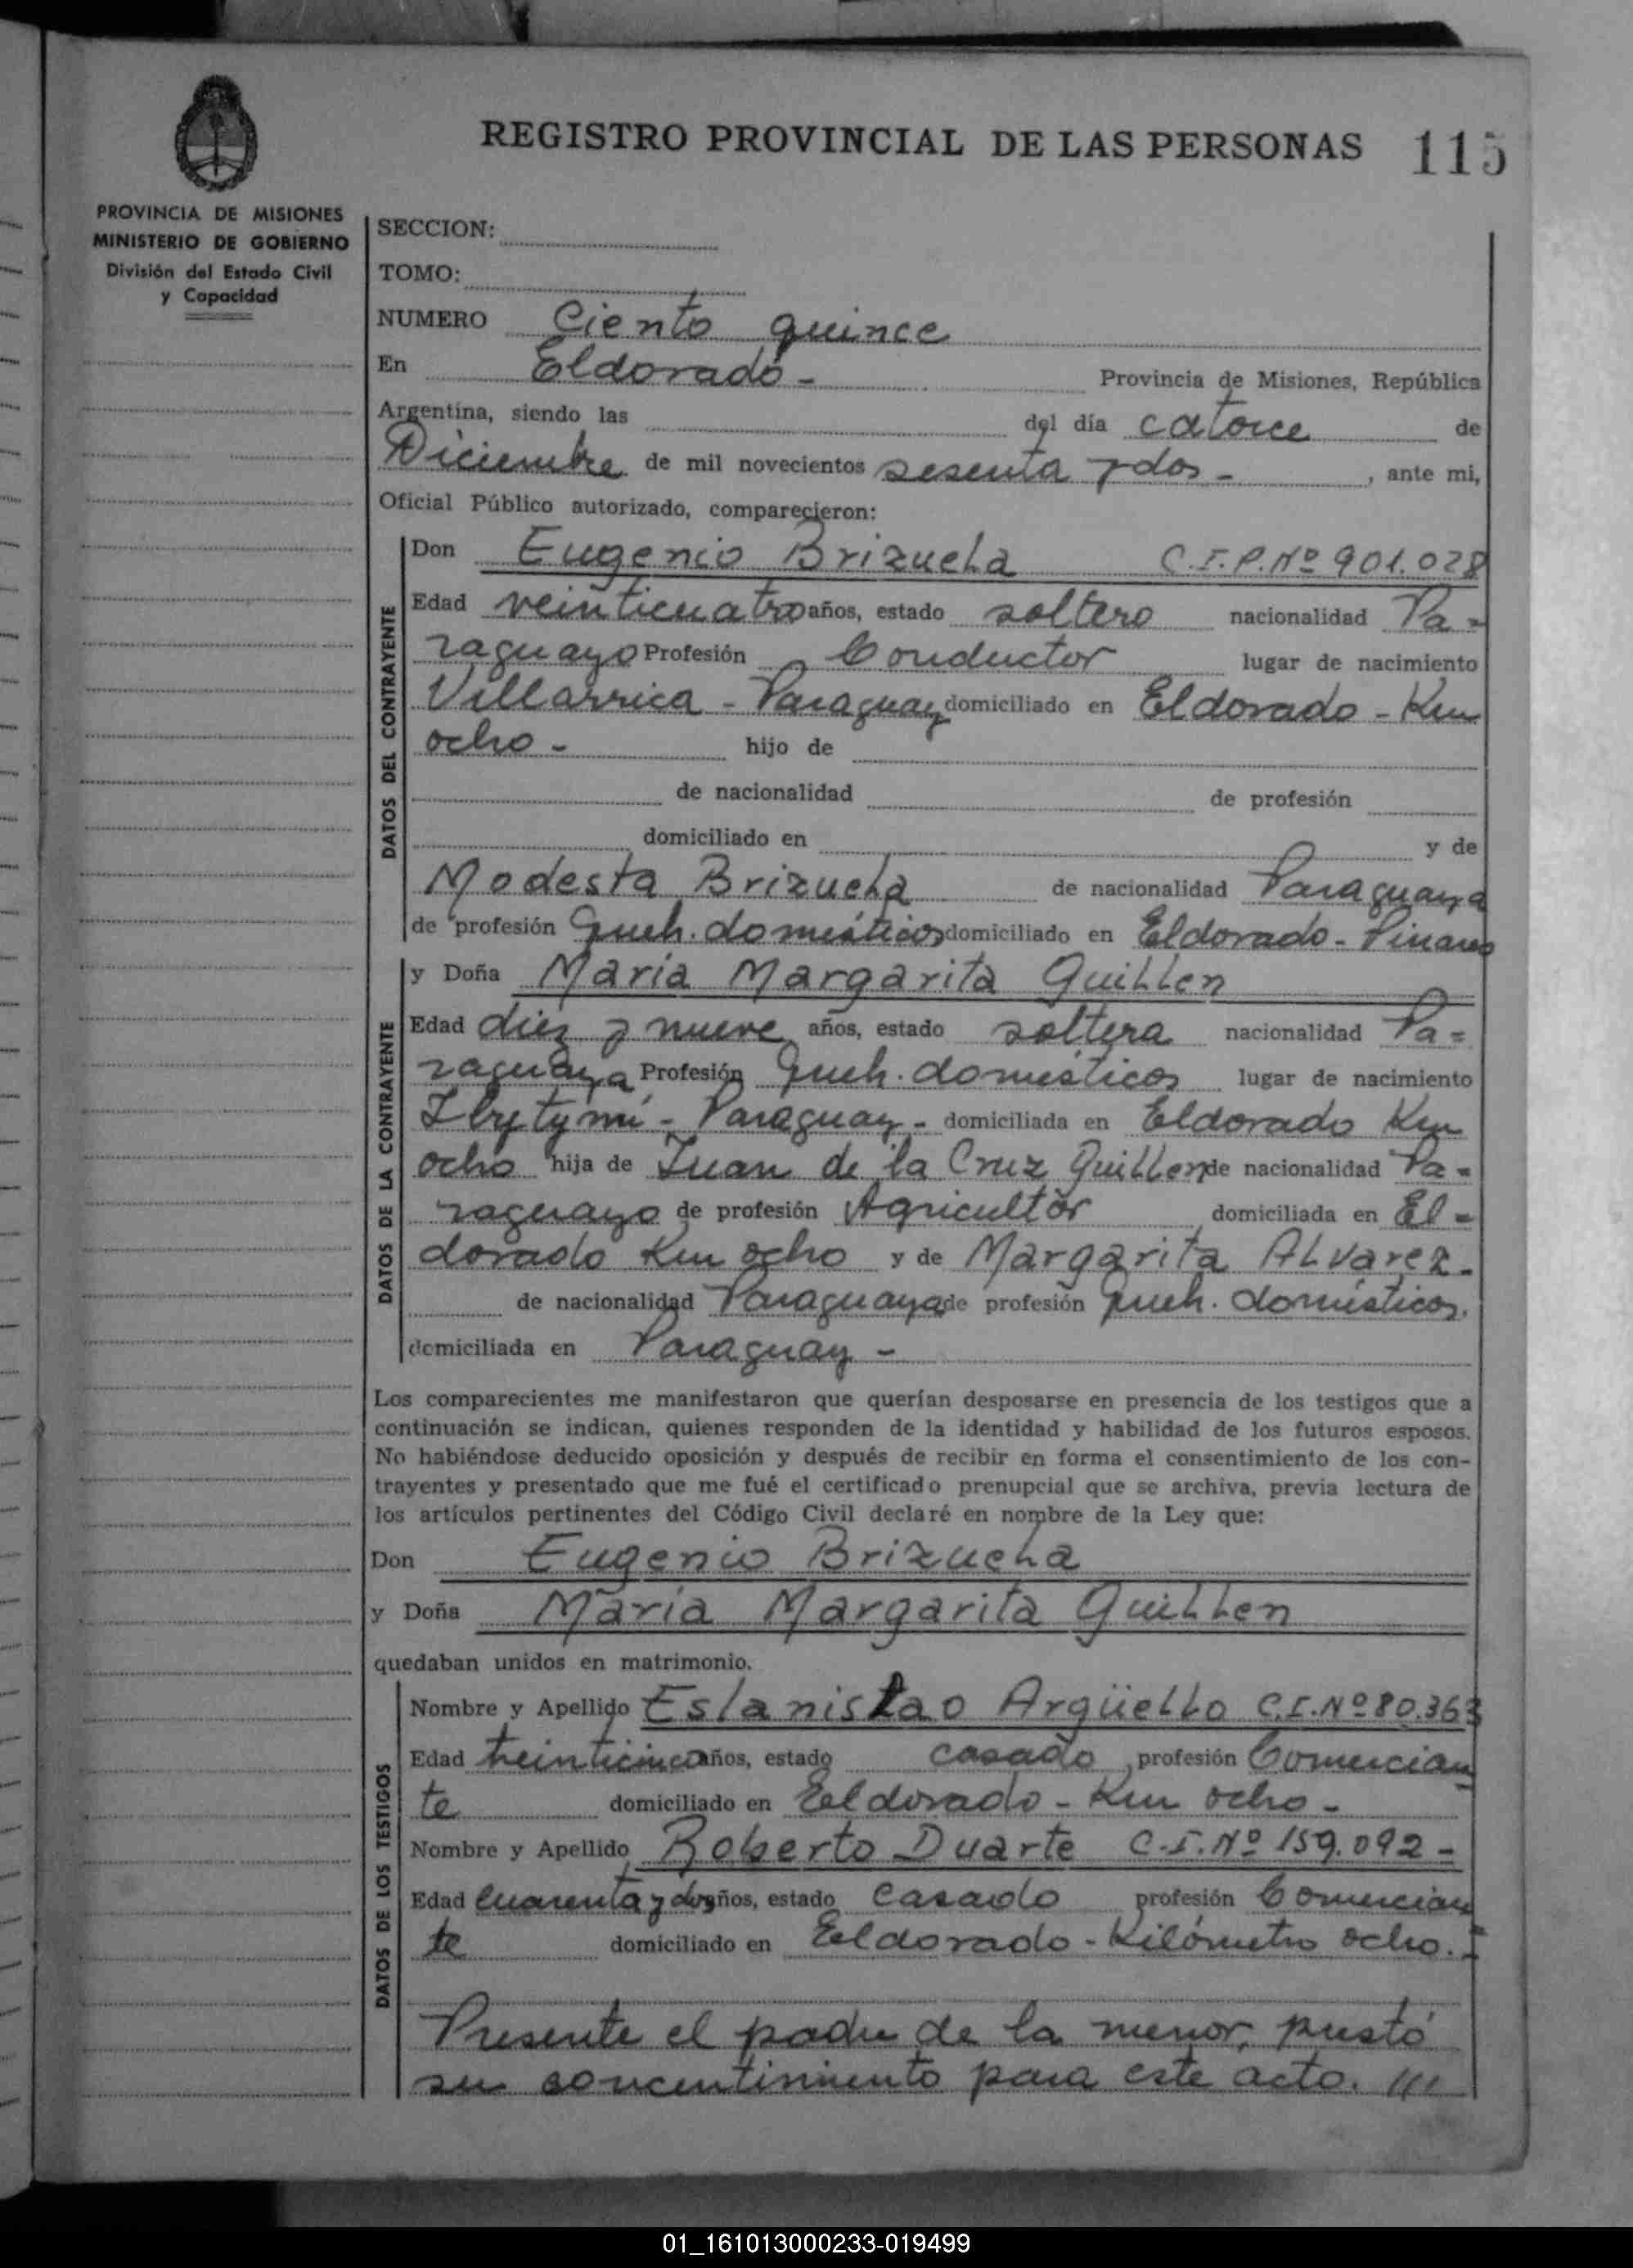 REGISTRO PROVINCIAL DE LAS PERSONAS 115
PROVINCIA DE MISIONES
MINISTERIO DE GOBIERNO
División del Estado Civil
y Capacidad
SECCION:
TOMO:
NUMERO Ciento quince
En Eldorado - Provincia de Misiones, República
Argentina, siendo las del día catorce de
Diciembre de mil novecientos sesenta y dos - , ante mi,
Oficial Público autorizado, comparecieron:
DATOS DEL CONTRAYENTE
Don Eugenio Brizuela C.I.P. Nº 901.028
Edad veinticuatro años, estado soltero nacionalidad Pa=
raguayo Profesión Conductor lugar de nacimiento
Villarrica - Paraguay domiciliado en Eldorado - Km
ocho - hijo de
de nacionalidad de profesión
domiciliado en y de
Modesta Brizuela de nacionalidad Paraguaya
de profesión Queh. domésticos domiciliado en Eldorado - Pinares
DATOS DE LA CONTRAYENTE
y Doña María Margarita Guillen
Edad diez y nueve años, estado soltera nacionalidad Pa=
raguaya Profesión Queh. domésticos lugar de nacimiento
Ybytymí - Paraguay - domiciliada en Eldorado Km
ocho hija de Juan de la Cruz Guillen de nacionalidad Pa=
raguayo de profesión Agricultor domiciliada en El=
dorado Km ocho y de Margarita Alvarez -
de nacionalidad Paraguaya de profesión Queh. domésticos.
domiciliada en Paraguay -
Los comparecientes me manifestaron que querían desposarse en presencia de los testigos que a
continuación se indican, quienes responden de la identidad y habilidad de los futuros esposos.
No habiéndose deducido oposición y después de recibir en forma el consentimiento de los con-
trayentes y presentado que me fué el certificado prenupcial que se archiva, previa lectura de
los artículos pertinentes del Código Civil declaré en nombre de la Ley que:
Don Eugenio Brizuela
y Doña María Margarita Guillen
quedaban unidos en matrimonio.
DATOS DE LOS TESTIGOS
Nombre y Apellido Eslanislao Argüello C.I. Nº 80.363
Edad treinticinco años, estado casado profesión Comercian
te domiciliado en Eldorado - Km ocho -
Nombre y Apellido Roberto Duarte C.I. Nº 159.092 -
Edad cuarenta y dos años, estado casado profesión Comercian
te domiciliado en Eldorado - Kilómetro ocho. -
Presente el padre de la menor, prestó
su concentimiento para este acto. ///
01_161013000233-019499